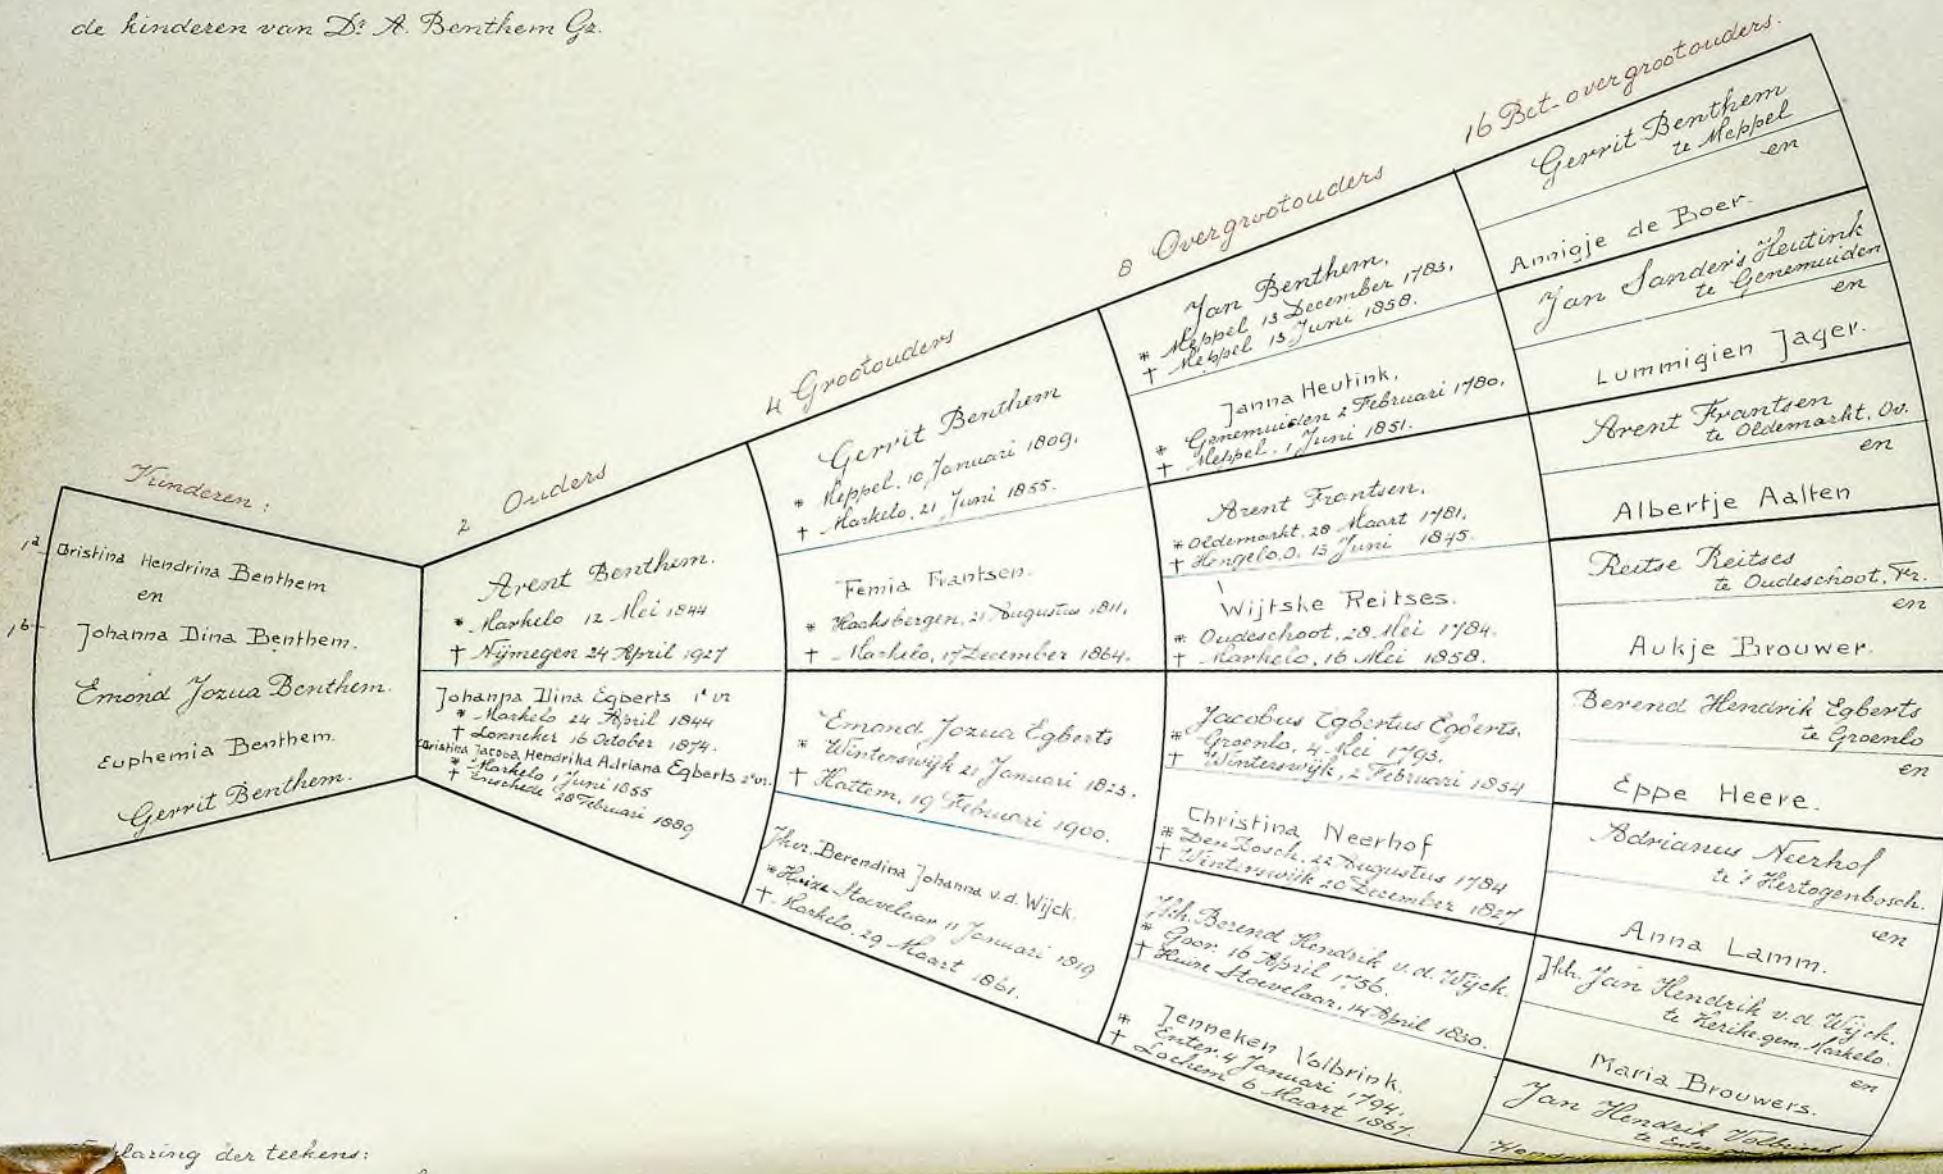 de kinderen van Dr. A. Benthem Gz.
Kinderen:
1a Cristina Hendrina Benthem
en
1b Johanna Dina Benthem.
Emond Jozua Benthem.
Euphemia Benthem.
Gerrit Benthem.
2 Ouders
Arent Benthem.
* Markelo 12 Mei 1844
† Nijmegen 24 April 1927
Johanna Dina Egberts 1e vr
* Markelo 24 April 1844
† Lonneker 16 October 1874.
Cristina Jacoba Hendrika Adriana Egberts 2e vr.
* Markelo 1 Juni 1855
† Enschede 28 Februari 1889
4 Grootouders
Gerrit Benthem
* Meppel. 10 Januari 1809.
† Markelo, 21 Juni 1855.
Femia Frantsen.
* Haaksbergen, 21 Augustus 1811.
† Markelo, 17 December 1864.
Emond Jozua Egberts
* Winterswijk 21 Januari 1823.
† Hattem, 19 Februari 1900.
Jkvr. Berendina Johanna v.d. Wijck.
* Huize Stoevelaar 11 Januari 1819
†. Markelo. 29 Maart 1861.
8 Overgrootouders
Jan Benthem.
* Meppel 13 December 1783.
† Meppel 13 Juni 1858.
Janna Heutink.
* Genemuiden 2 Februari 1780.
† Meppel. 1 Juni 1851.
Arent Frantsen.
* Oldemarkt, 28 Maart 1781.
† Hengelo. O. 13 Juni 1845.
Wijtske Reitses.
* Oudeschoot, 28 Mei 1784.
† Markelo, 16 Mei 1858.
Jacobus Egbertus Egberts.
* Groenlo, 4 Mei 1793.
† Winterswijk, 2 Februari 1854
Christina Neerhof
* Den Bosch. 22 Augustus 1784
† Winterswijk 20 December 1827
Jkh. Berend Hendrik v.d. Wijck.
* Goor. 16 April 1756.
† Huize Stoevelaar. 14 April 1830.
Jenneken Volbrink.
* Enter. 4 Januari 1794.
† Lochem 6 Maart 1867.
16 Bet-overgrootouders.
Gerrit Benthem
te Meppel
en
Annigje de Boer.
Jan Sander's Heutink
te Genemuiden
en
Lummigien Jager.
Arent Frantsen
te Oldemarkt. Ov.
en
Albertje Aalten
Reitse Reitses
te Oudeschoot, Fr.
en
Aukje Brouwer.
Berend Hendrik Egberts
te Groenlo
en
Eppe Heere.
Adrianus Neerhof
te 's Hertogenbosch.
en
Anna Lamm.
Jkh. Jan Hendrik v.d. Wijck.
te Kerike. gem. Markelo.
en
Maria Brouwers.
Jan Hendrik Volbrink
te Enter
der teekens: